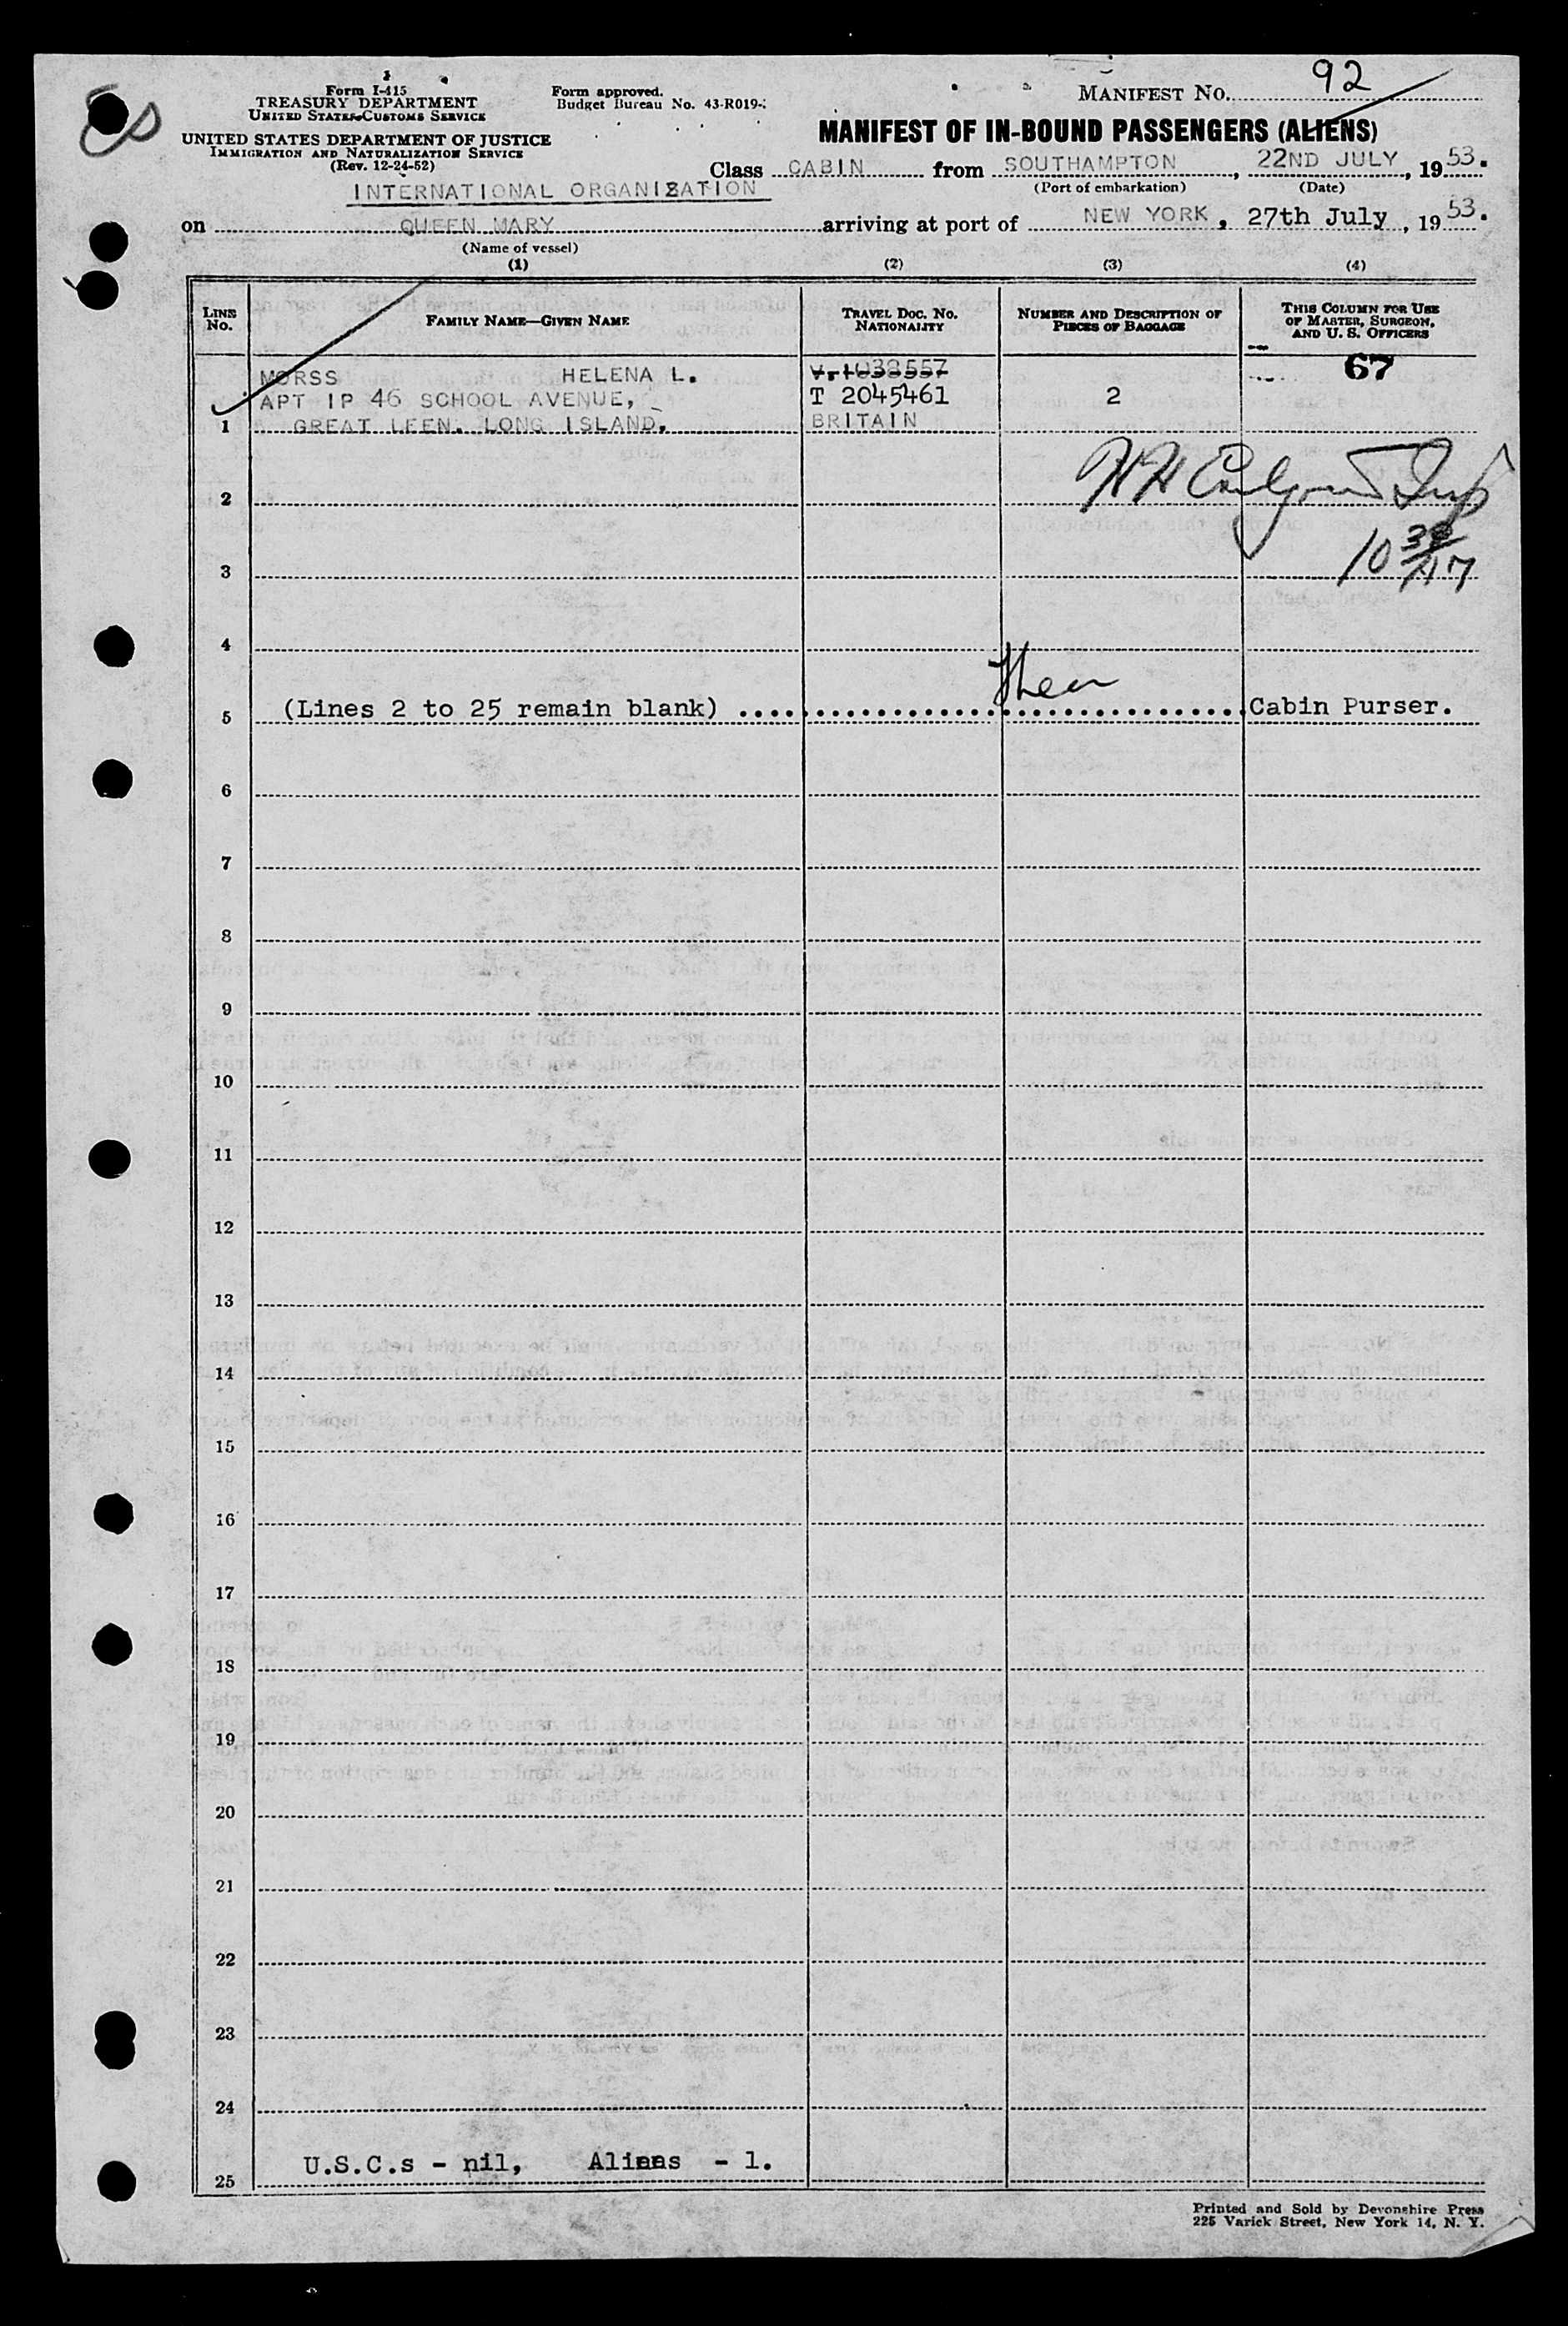 Form I-415
TREASURY DEPARTMENT
UNITED STATES CUSTOMS SERVICE
UNITED STATES DEPARTMENT OF JUSTICE
IMMIGRATION AND NATURALIZATION SERVICE
(Rev. 12-24-52)
Form approved.
Budget Bureau No. 43-R019-
MANIFEST NO. 92
MANIFEST OF IN-BOUND PASSENGERS (ALIENS)
Class CABIN from SOUTHAMPTON, 22ND JULY, 1953.
(Port of embarkation) (Date)
INTERNATIONAL ORGANIZATION
on QUEEN MARY arriving at port of NEW YORK, 27th July, 1953.
(Name of vessel)
(1) (2) (3) (4)
LINE No. FAMILY NAME—GIVEN NAME TRAVEL DOC. NO. NATIONALITY NUMBER AND DESCRIPTION OF PIECES OF BAGGAGE THIS COLUMN FOR USE OF MASTER, SURGEON, AND U. S. OFFICERS
67
MORSS HELENA L. V.1038557
APT 1P 46 SCHOOL AVENUE, T 2045461 2
1 GREAT LEEN. LONG ISLAND. BRITAIN
2
10 30
3
4
5 (Lines 2 to 25 remain blank) ........ Cabin Purser.
6
7
8
9
10
11
12
13
14
15
16
17
18
19
20
21
22
23
24
25 U.S.C.s - nil, Aliens - 1.
Printed and Sold by Devonshire Press
225 Varick Street, New York 14, N. Y.